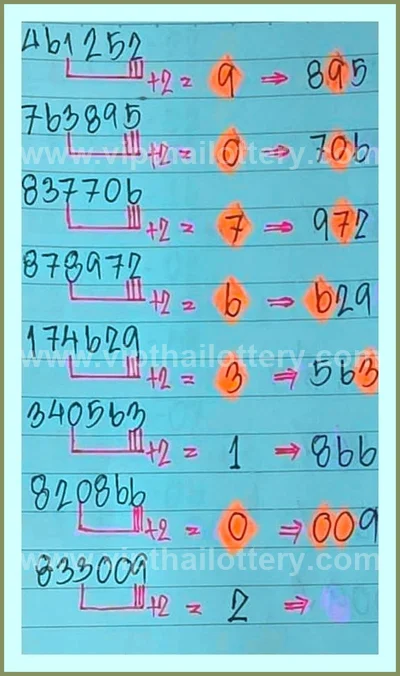 461252
+2 = 9 ⇒ 895
763895
www.vipthailottery.com
+2 = 0 ⇒ 706
837706
+2 = 7 ⇒ 972
878972
+2 = 6 ⇒ 629
174629
www.vipthailottery.com
+2 = 3 ⇒ 563
340563
+2 = 1 ⇒ 866
820866
+2 = 0 ⇒ 009
www.vipthailottery.com
833009
+2 = 2 ⇒